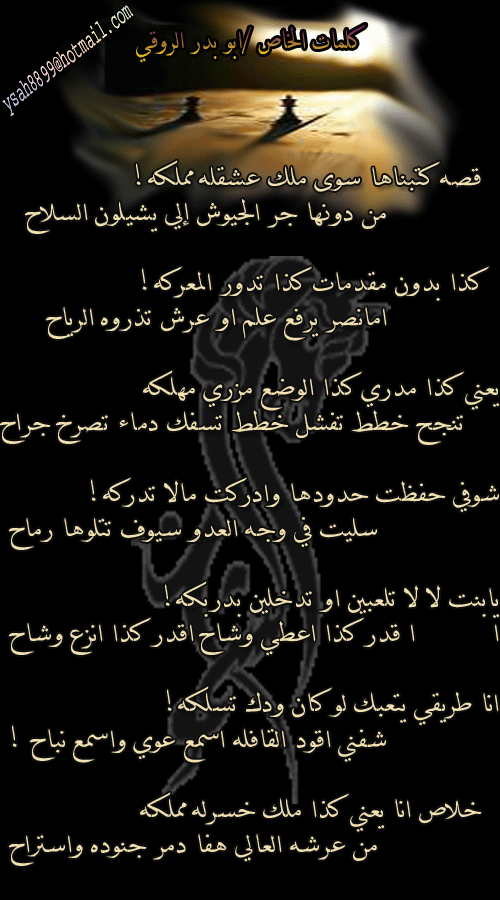 ysah8899@hotmail.com
كلمات الخاص /ابو بدر الروقي
قصه كتبناها سوى ملك عشقله مملكه !
من دونها جر الجيوش إلي يشيلون السلاح
كذا بدون مقدمات كذا تدور المعركه !
امانصر يرفع علم او عرش تذروه الرياح
يعني كذا مدري كذا الوضع مزري مهلكه
تنجح خطط تفشل خطط تسفك دماء تصرخ جراح
شوفي حفظت حدودها وادركت مالا تدركه !
سليت في وجه العدو سيوف تتلوها رماح
يابنت لا لا تلعبين او تدخلين بدربكه !
ا ا قدر كذا اعطي وشاح اقدر كذا انزع وشاح
انا طريقي يتعبك لو كان ودك تسلكه !
شفني اقود القافله اسمع عوي واسمع نباح !
خلاص انا يعني كذا ملك خسرله مملكه
من عرشه العالي هفا دمر جنوده واستراح